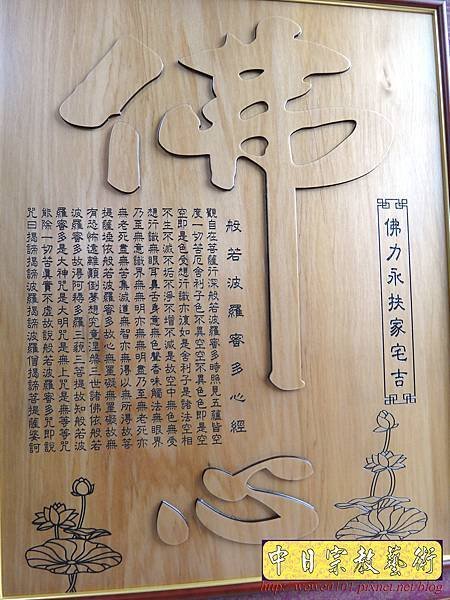 佛心
佛力永扶家宅吉
般若波羅蜜多心經
觀自在菩薩行深般若波羅蜜多時照見五蘊皆空
度一切苦厄舍利子色不異空空不異色色即是空
空即是色受想行識亦復如是舍利子是諸法空相
不生不滅不垢不淨不增不減是故空中無色無受
想行識無眼耳鼻舌身意無色聲香味觸法無眼界
乃至無意識界無無明亦無無明盡乃至無老死亦
無老死盡無苦集滅道無智亦無得以無所得故菩
提薩埵依般若波羅蜜多故心無罣礙無罣礙故無
有恐怖遠離顛倒夢想究竟涅槃三世諸佛依般若
波羅蜜多故得阿耨多羅三藐三菩提故知般若波
羅蜜多是大神咒是大明咒是無上咒是無等等咒
能除一切苦真實不虛故說般若波羅蜜多咒即說
咒曰揭諦揭諦波羅揭諦波羅僧揭諦菩提薩婆訶
中日宗教藝術
http://wewe0101.pixnet.net/blog